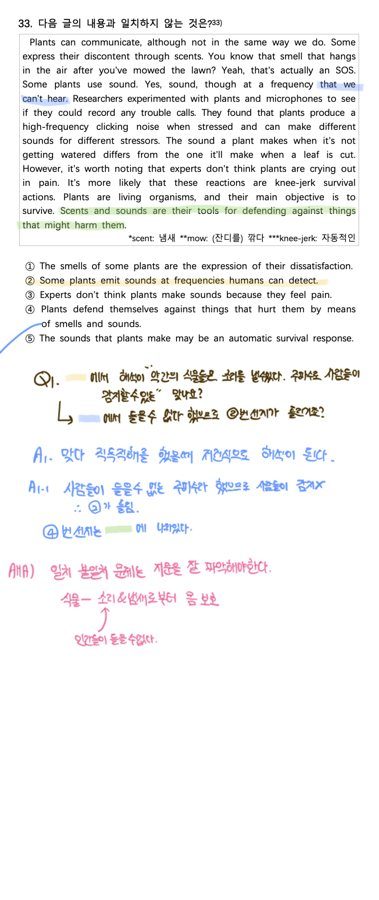 33. 다음 글의 내용과 일치하지 않는 것은?33)
Plants can communicate, although not in the same way we do. Some
express their discontent through scents. You know that smell that hangs
in the air after you've mowed the lawn? Yeah, that's actually an SOS.
Some plants use sound. Yes, sound, though at a frequency that we
can't hear. Researchers experimented with plants and microphones to see
if they could record any trouble calls. They found that plants produce a
high-frequency clicking noise when stressed and can make different
sounds for different stressors. The sound a plant makes when it's not
getting watered differs from the one it'll make when a leaf is cut.
However, it's worth noting that experts don't think plants are crying out
in pain. It's more likely that these reactions are knee-jerk survival
actions. Plants are living organisms, and their main objective is to
survive. Scents and sounds are their tools for defending against things
that might harm them.
*scent: 냄새 **mow: (잔디를) 깎다 ***knee-jerk: 자동적인
① The smells of some plants are the expression of their dissatisfaction.
② Some plants emit sounds at frequencies humans can detect.
③ Experts don't think plants make sounds because they feel pain.
④ Plants defend themselves against things that hurt them by means
of smells and sounds.
⑤ The sounds that plants make may be an automatic survival response.
Q1. 에서 해석이 "약간의 식물들은 소리를 낼수있다. 주파수로 사람들이
감지할수있는" 맞나요?
에서 들을수 없다 했으므로 ②번선지가 틀린거죠?
A1. 맞다 직독직해를 했을때 저런식으로 해석이 된다.
A1-1 사람들이 들을수 없는 주파수라 했으므로 사람들이 감지X
∴ ②가 틀림.
④번선지는 에 나와있다.
AHA) 일치 불일치 문제는 지문을 잘 파악해야한다.
식물 — 소리&냄새로부터 몸 보호
인간들이 들을수없다.